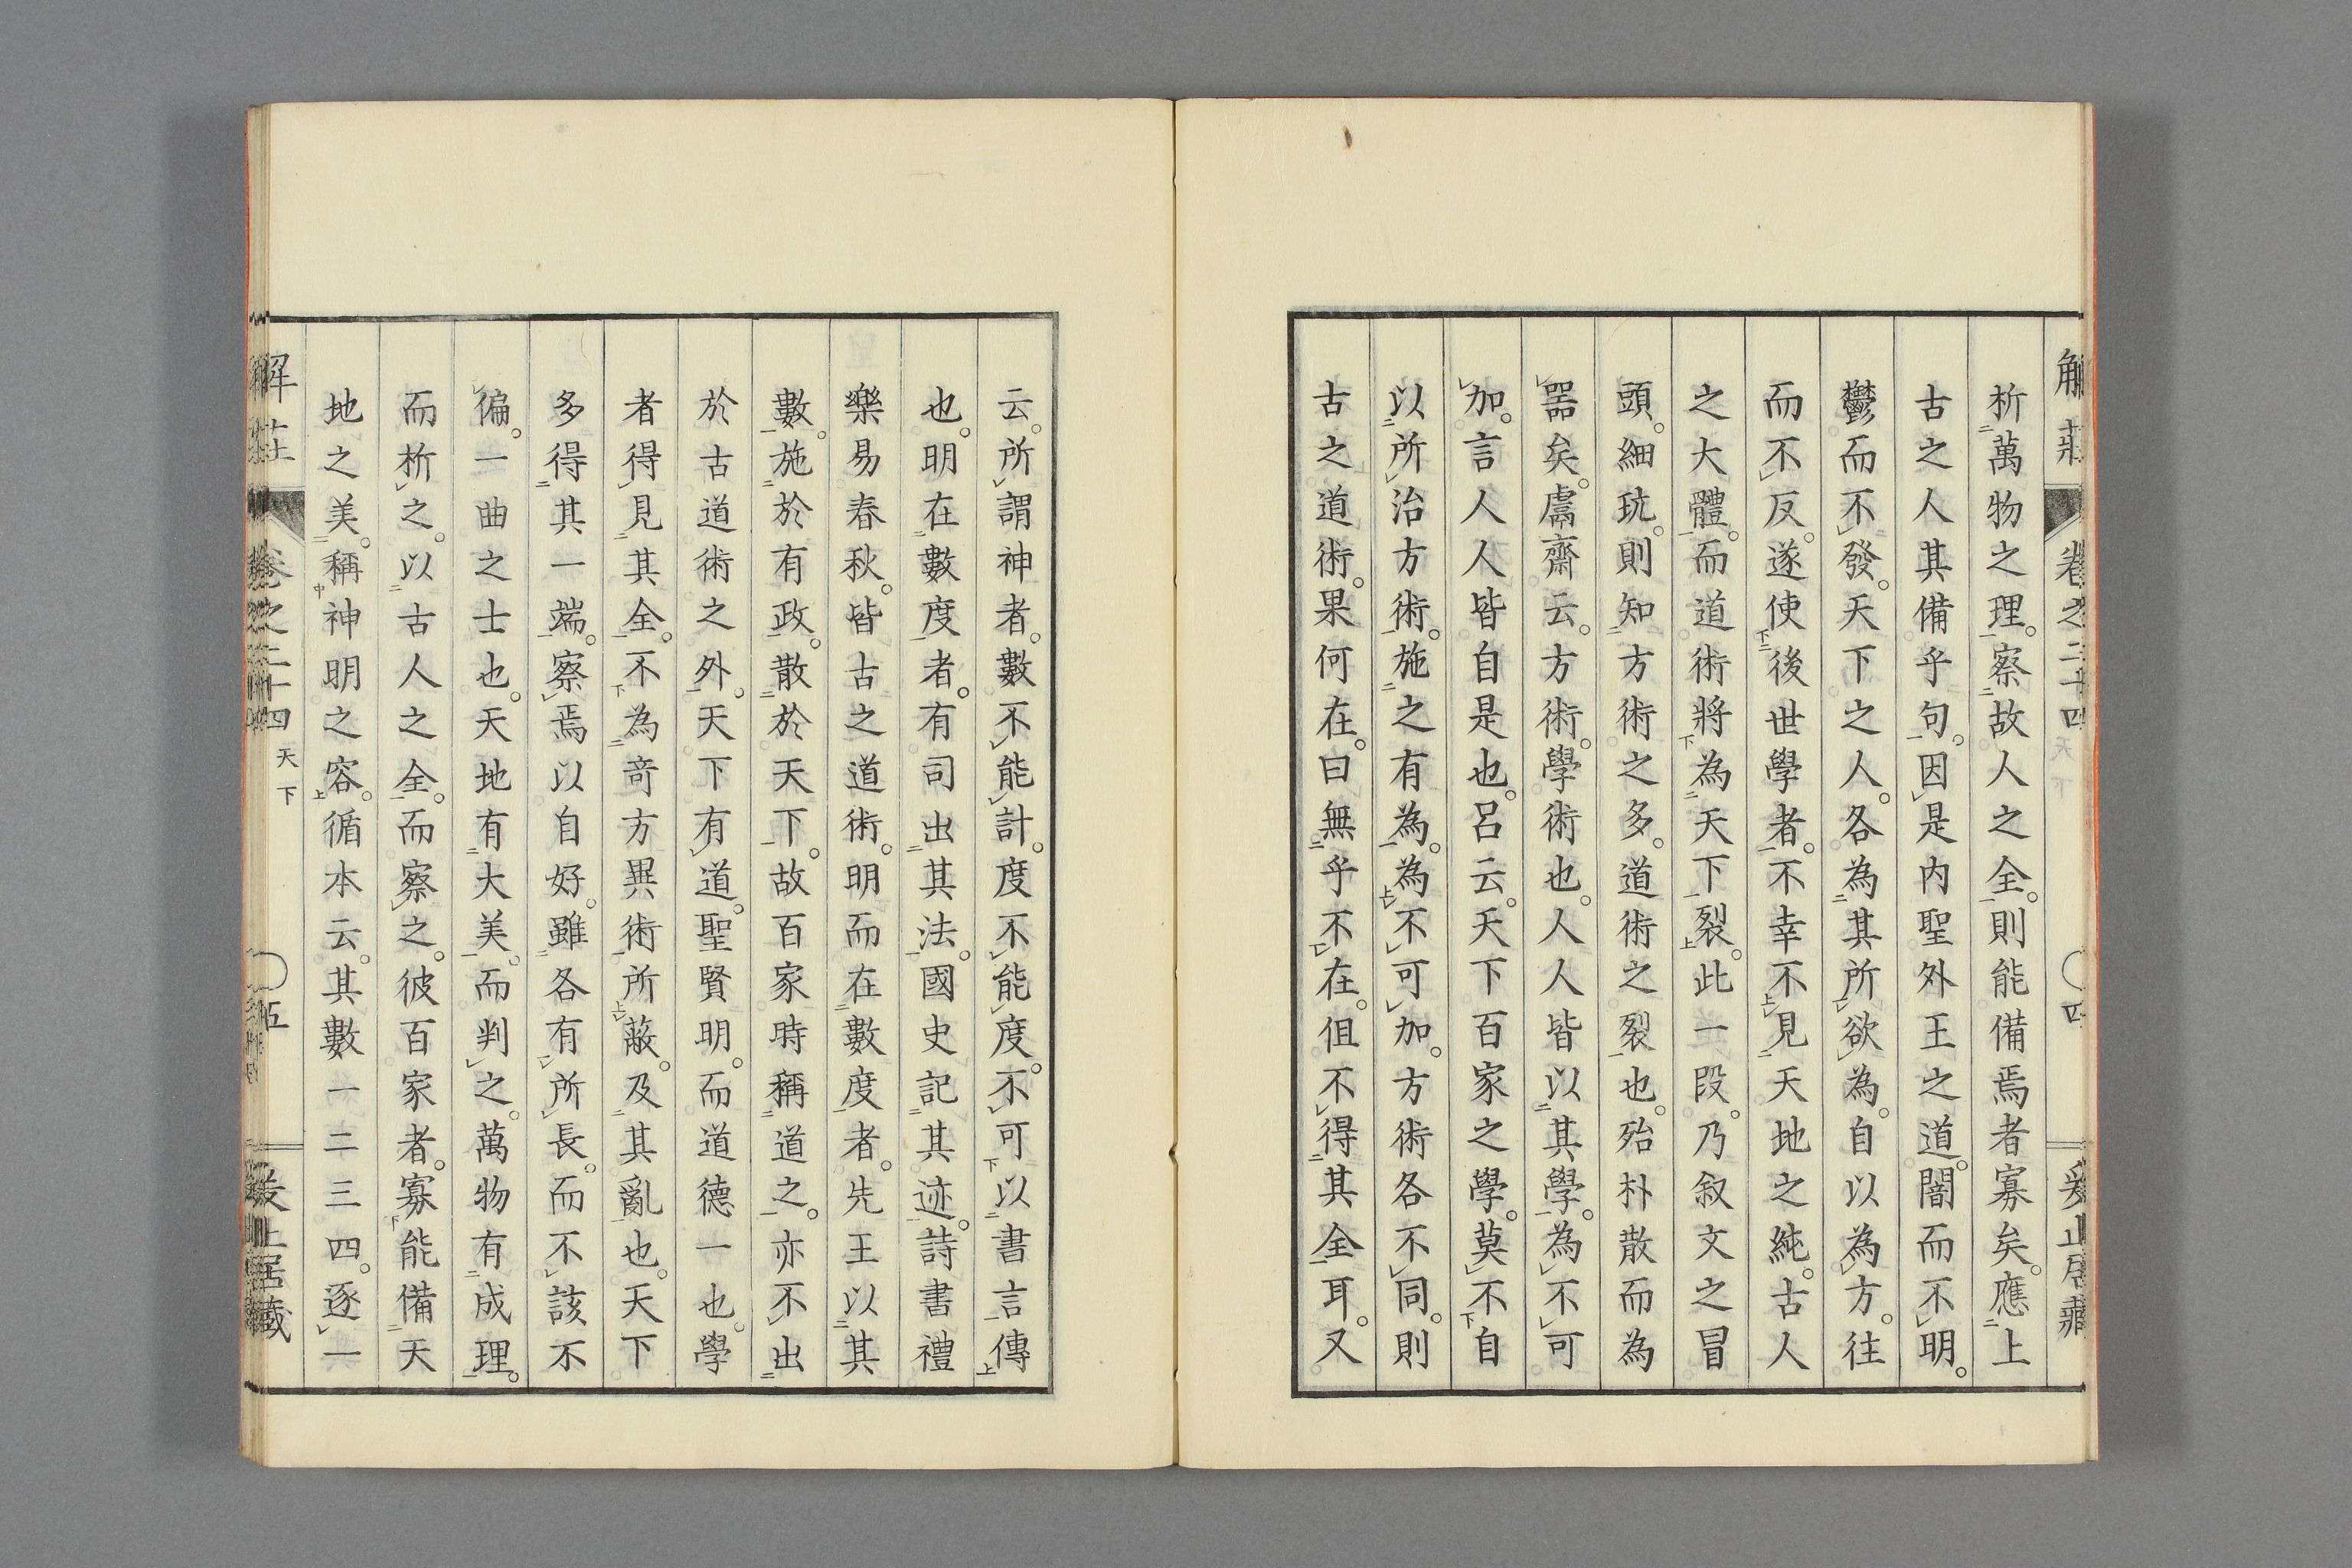 解莊 卷之二十四 天下 〇四
析萬物之理。察故人之全。則能備焉者寡矣。應上
古之人其備乎句。因是内聖外王之道。闇而不明。
鬱而不發。天下之人。各為其所欲為。自以為方。往
而不反。遂使後世學者。不幸不見天地之純。古人
之大體。而道術將為天下裂。此一段。乃叙文之冒
頭。細玩。則知方術之多。道術之裂也。殆朴散而為
噐矣。鬳齋云。方術。學術也。人人皆以其學。為不可
加。言人人皆自是也。呂云。天下百家之學。莫不自
以所治方術。施之有為。為不可加。方術各不同。則
古之道術。果何在。曰無乎不在。但不得其全耳。又
云。所謂神者。數不能計。度不能度。不可以書言傳
也。明在數度者。有司出其法。國史記其迹。詩書禮
樂易春秋。皆古之道術。明而在數度者。先王以其
數。施於有政。散於天下。故百家時稱道之。亦不出
於古道術之外。天下有道。聖賢明。而道德一也。學
者得見其全。不為竒方異術所蔽。及其亂也。天下
多得其一端。察焉以自好。雖各有所長。而不該不
偏。一曲之士也。天地有大美。而判之。萬物有成理。
而析之。以古人之全。而察之。彼百家者。寡能備天
地之美。稱神明之容。循本云。其數一二三四。逐一
解莊 卷之二十四 天下 〇五